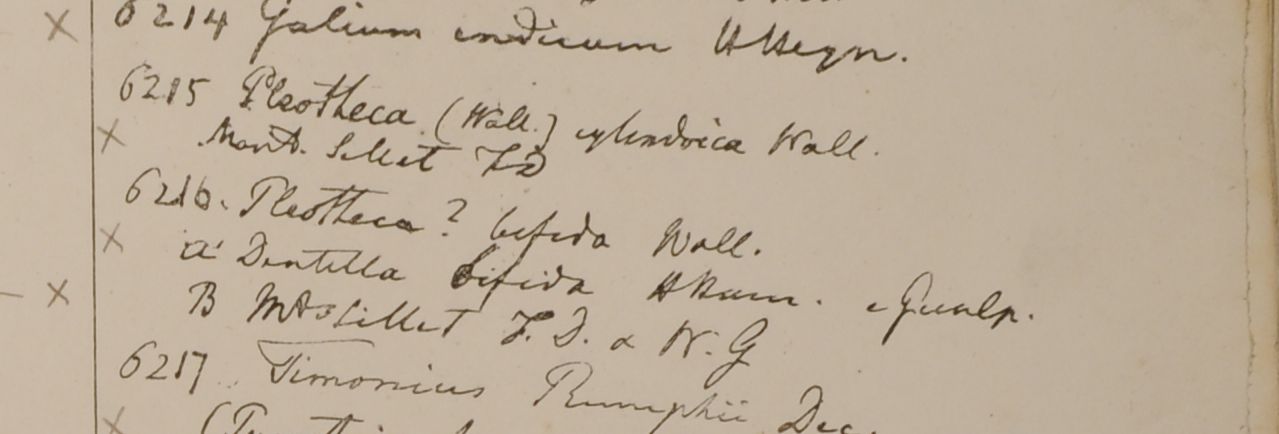 6214 Galium indicum HHeyn.
6215 Pleotheca (Wall.) cylindrica Wall.
Mont. Sillet FD
6216. Pleotheca? bifida Wall.
a Dentella bifida HHam. e Gualp.
B Mts Sillet F. D. & W. G
6217 Timonius Rumphii Dec.